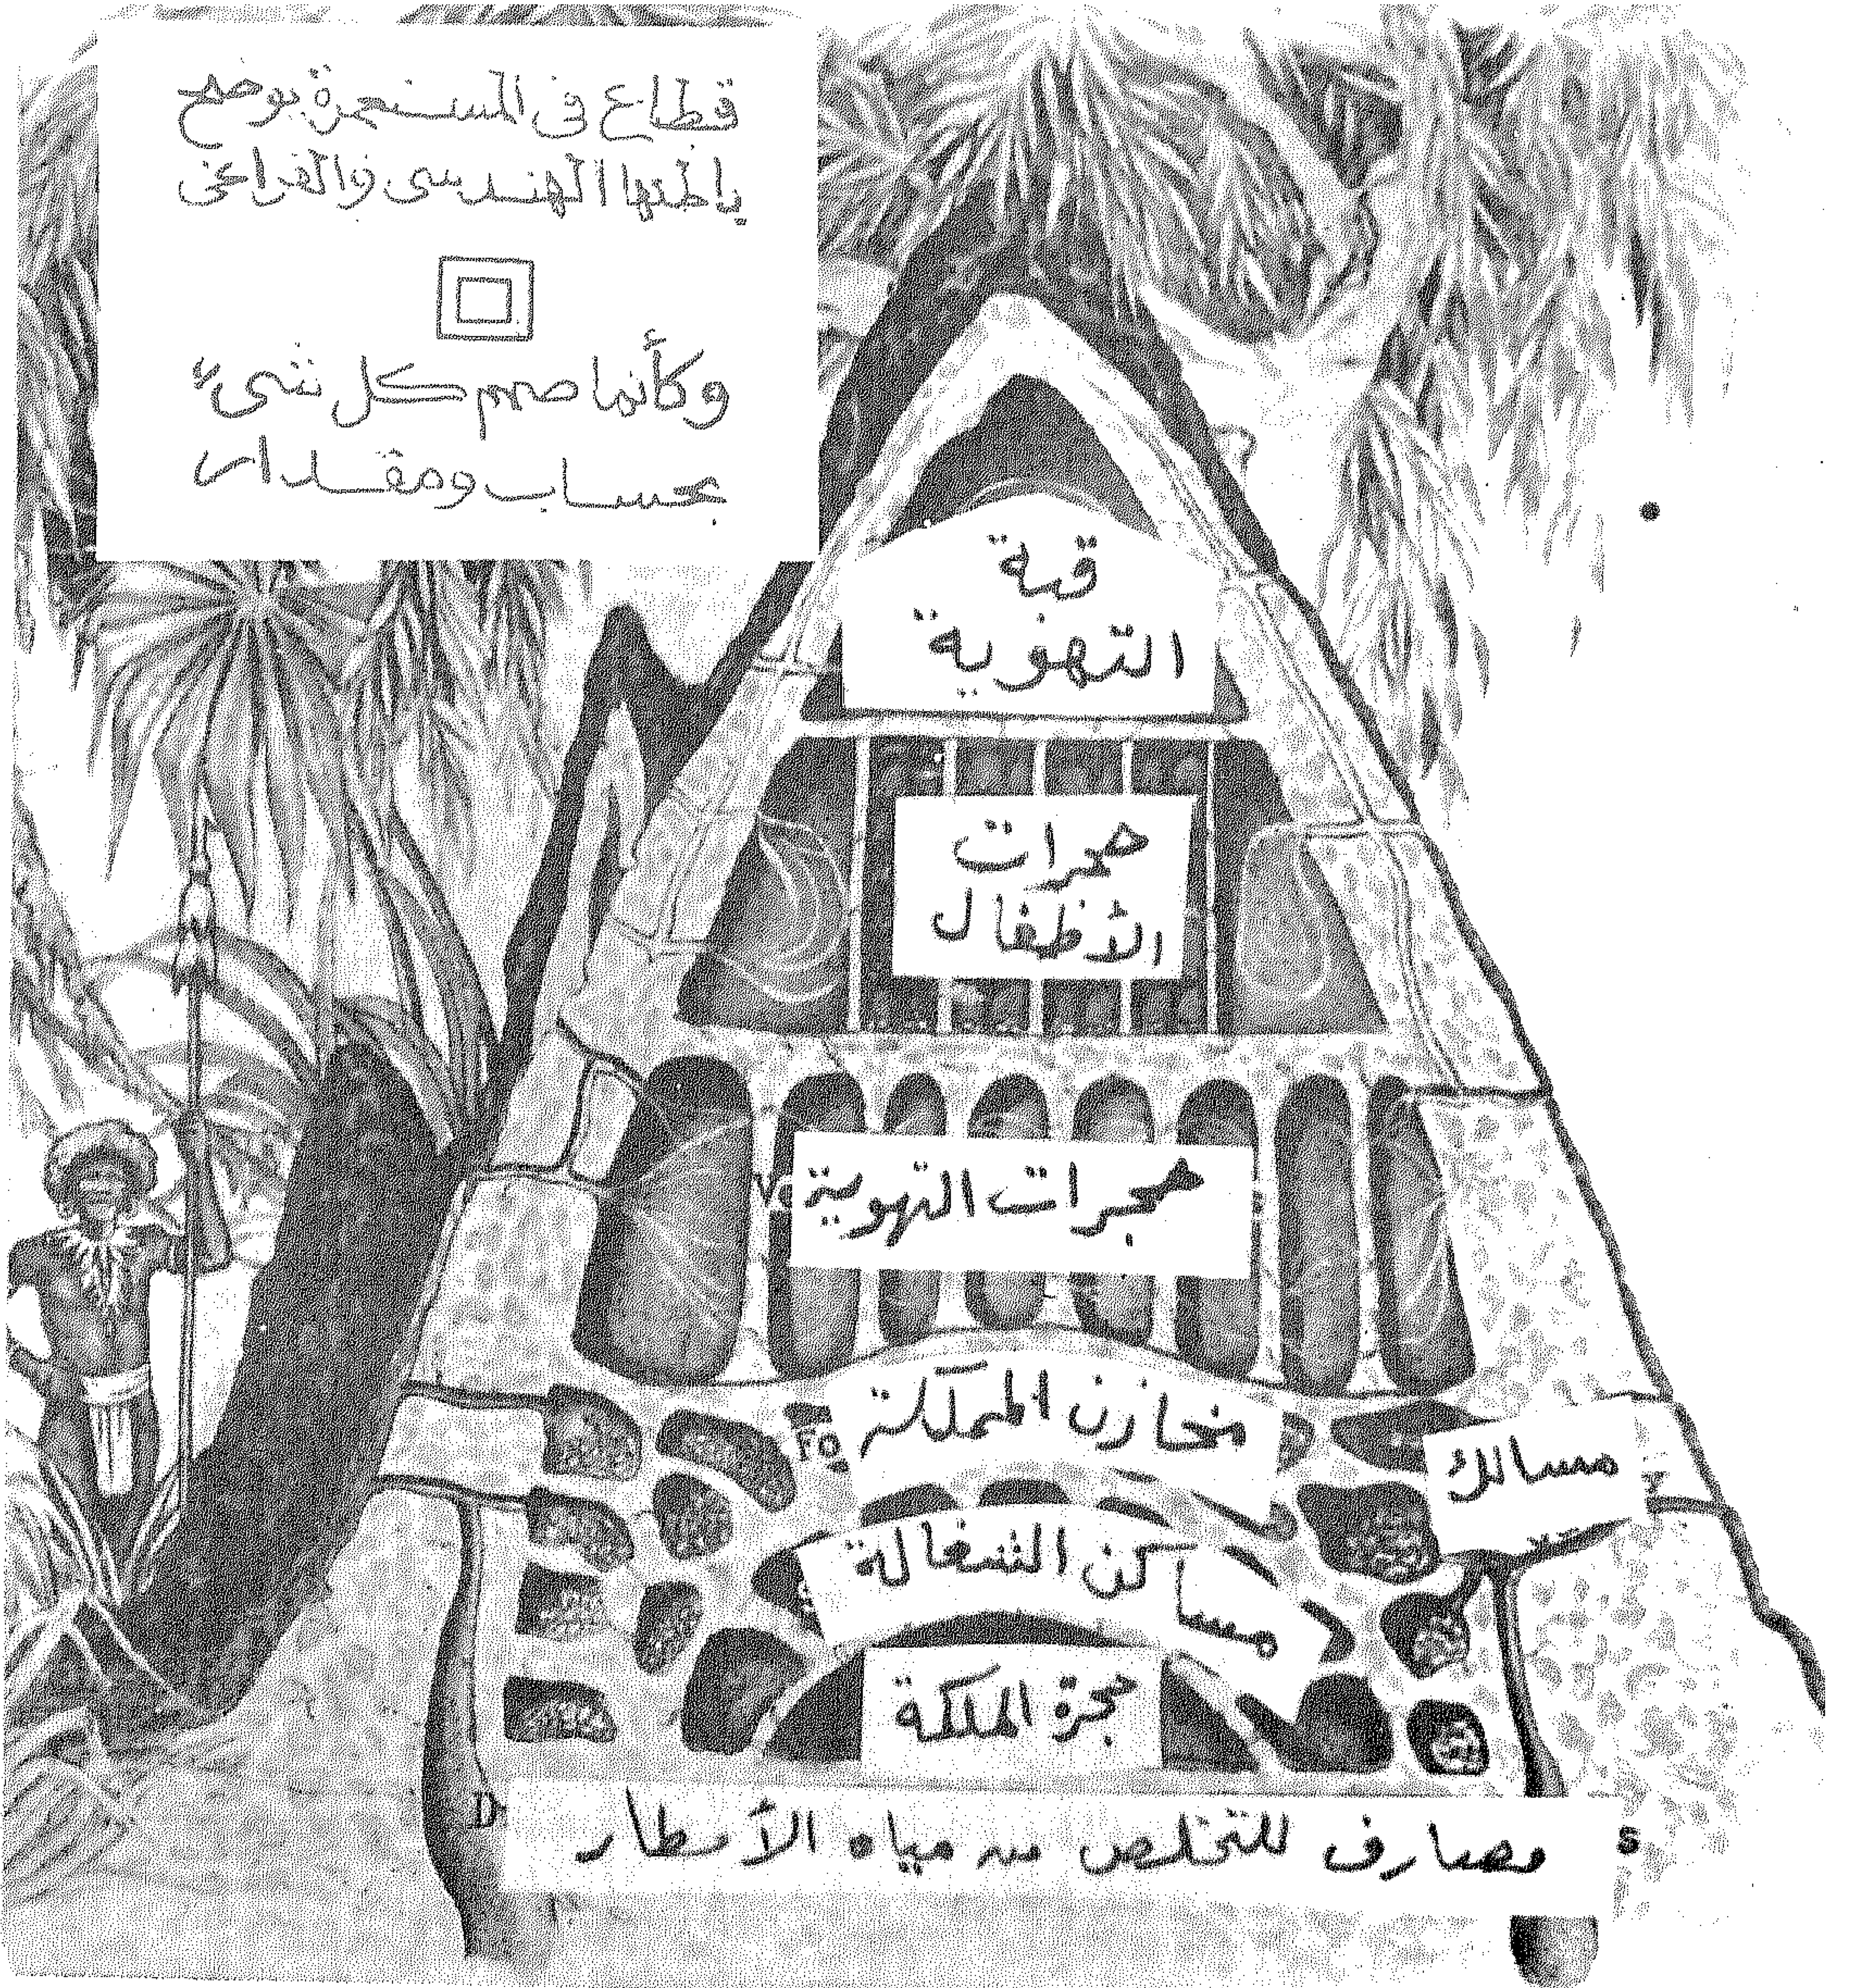 قطاع فى المستعمرة يوضح
باطنها الهندسى والفراغى
وكأنما صمم كل شىء
بحساب ومقدار
قبة
التهوية
حجرات
الأطفال
حجرات التهوية
مخازن المملكة
Fo
مسالك
مساكن الشغالة
حجرة الملكة
D
مصارف للتخلص من مياه الأمطار
s